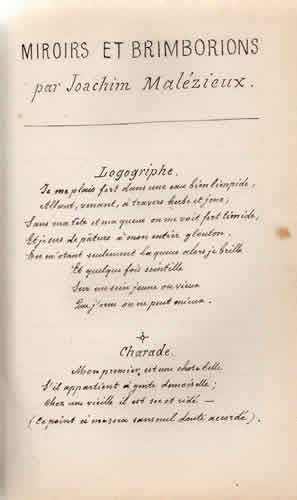 MIROIRS ET BRIMBORIONS
par Joachim Malézieux.
Logogriphe.
Je me plais fort dans une eau bien limpide,
Allant, venant, à travers herbe et jonc;
Sans ma tête et ma queue on me voit fort timide,
Et je sers de pâture à mon entier glouton.
En m'otant seulement la queue alors je brille
Et quelque fois scintille
Sur un sein jeune ou vieux
Qui j'orne on ne peut mieux.
Charade.
Mon premier est une chose belle
S'il appartient à gente demoiselle;
Chez une vieille il est sec et ridé —
(Ce point ci me sera sans nul doute accordé).